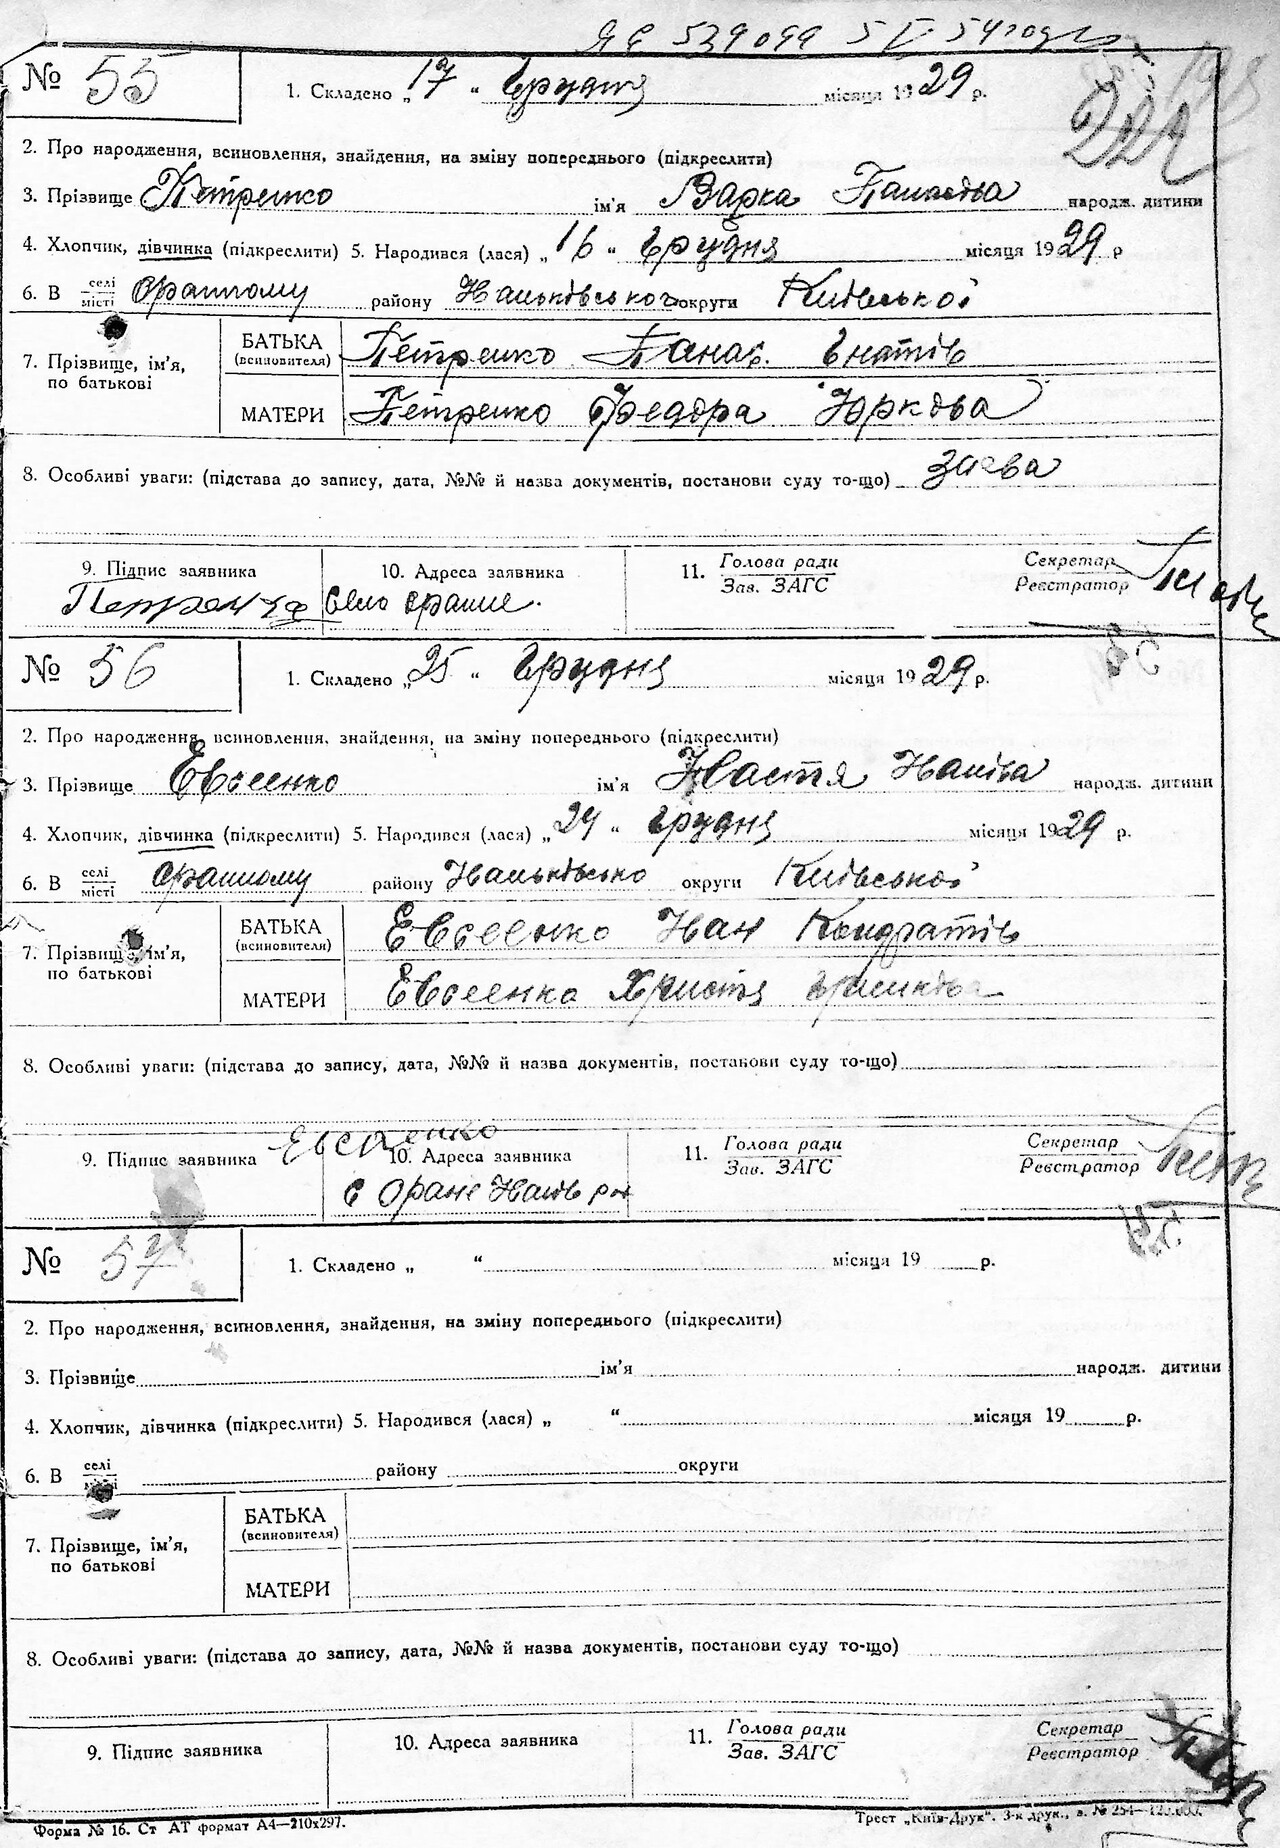 ЯЄ 539099 5 V 54
№ 55 1. Складено „17“ Грудня місяця 1929 р.
2. Про народження, всиновлення, знайдення, на зміну попереднього (підкреслити)
3. Прізвище Петренко ім'я Варка Панасова народж. дитини
4. Хлопчик, дівчинка (підкреслити) 5. Народився (лася) „16“ Грудня місяця 1929 р
6. В селі/місті Оранному району Іваньківського округи Київської
7. Прізвище, ім'я, по батькові
БАТЬКА (всиновителя) Петренко Панас. Гнатів
МАТЕРИ Петренко Федора Юркова
8. Особливі уваги: (підстава до запису, дата, №№ й назва документів, постанови суду то-що) заява
9. Підпис заявника 10. Адреса заявника 11. Голова ради/Зав. ЗАГС Секретар/Реєстратор
Петренко Село Оране.
№ 56 1. Складено „25“ Грудня місяця 1929 р.
2. Про народження, всиновлення, знайдення, на зміну попереднього (підкреслити)
3. Прізвище Евсеенко ім'я Настя Іванова народж. дитини
4. Хлопчик, дівчинка (підкреслити) 5. Народився (лася) „24“ Грудня місяця 1929 р.
6. В селі/місті Оранному району Іваньківсько округи Київської
7. Прізвище, ім'я, по батькові
БАТЬКА (всиновителя) Евсеенко Іван Кондратів
МАТЕРИ Евсеенко Христя
8. Особливі уваги: (підстава до запису, дата, №№ й назва документів, постанови суду то-що)
Евсеенко
9. Підпис заявника 10. Адреса заявника 11. Голова ради/Зав. ЗАГС Секретар/Реєстратор
с Оране
№ 57 1. Складено „ “ місяця 19 р.
2. Про народження, всиновлення, знайдення, на зміну попереднього (підкреслити)
3. Прізвище ім'я народж. дитини
4. Хлопчик, дівчинка (підкреслити) 5. Народився (лася) „ “ місяця 19 р.
6. В селі/місті району округи
7. Прізвище, ім'я, по батькові
БАТЬКА (всиновителя)
МАТЕРИ
8. Особливі уваги: (підстава до запису, дата, №№ й назва документів, постанови суду то-що)
9. Підпис заявника 10. Адреса заявника 11. Голова ради/Зав. ЗАГС Секретар/Реєстратор
Форма № 16. Ст АТ формат А4—210х297. Трест „Київ-Друк“. 3-к друк., з. № 254—